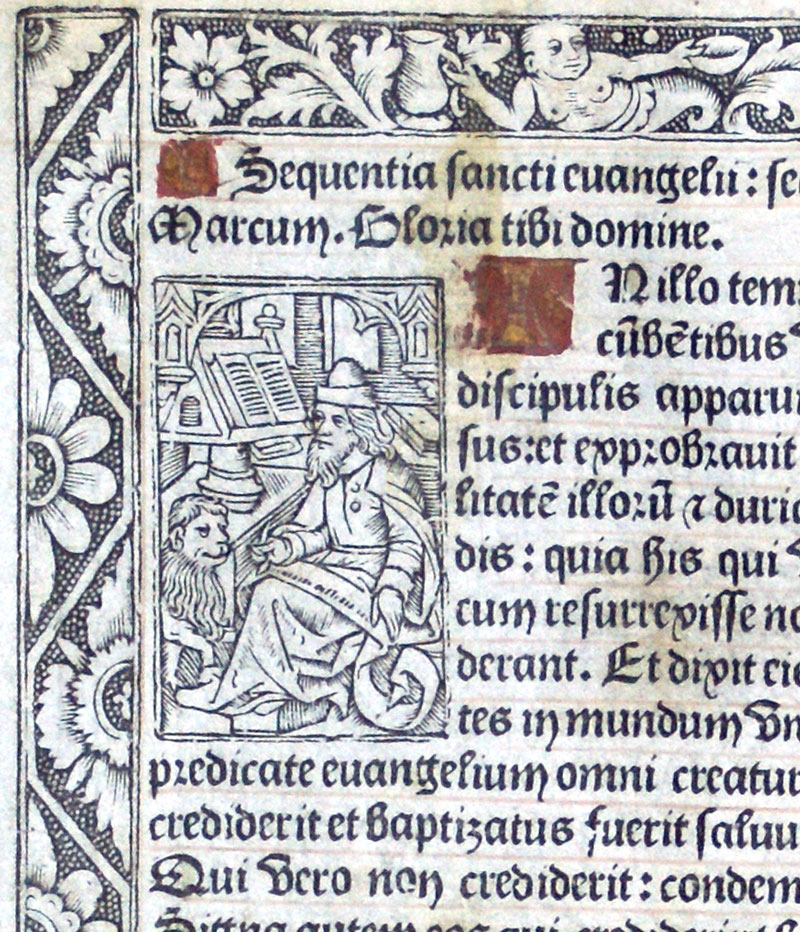 Sequentia sancti euangelii: se
Marcum. Gloria tibi domine.
IN illo tem
cūbētibus
discipulis apparu
sus: et exprobrauit
litatē illorū ⁊ duric
dis: quia his qui
cum resurrexisse no
derant. Et dixit eis
tes in mundum vn
predicate euangelium omni creatur
crediderit et baptizatus fuerit saluu
Qui vero non crediderit: condem
Signa autem eos qui crediderint